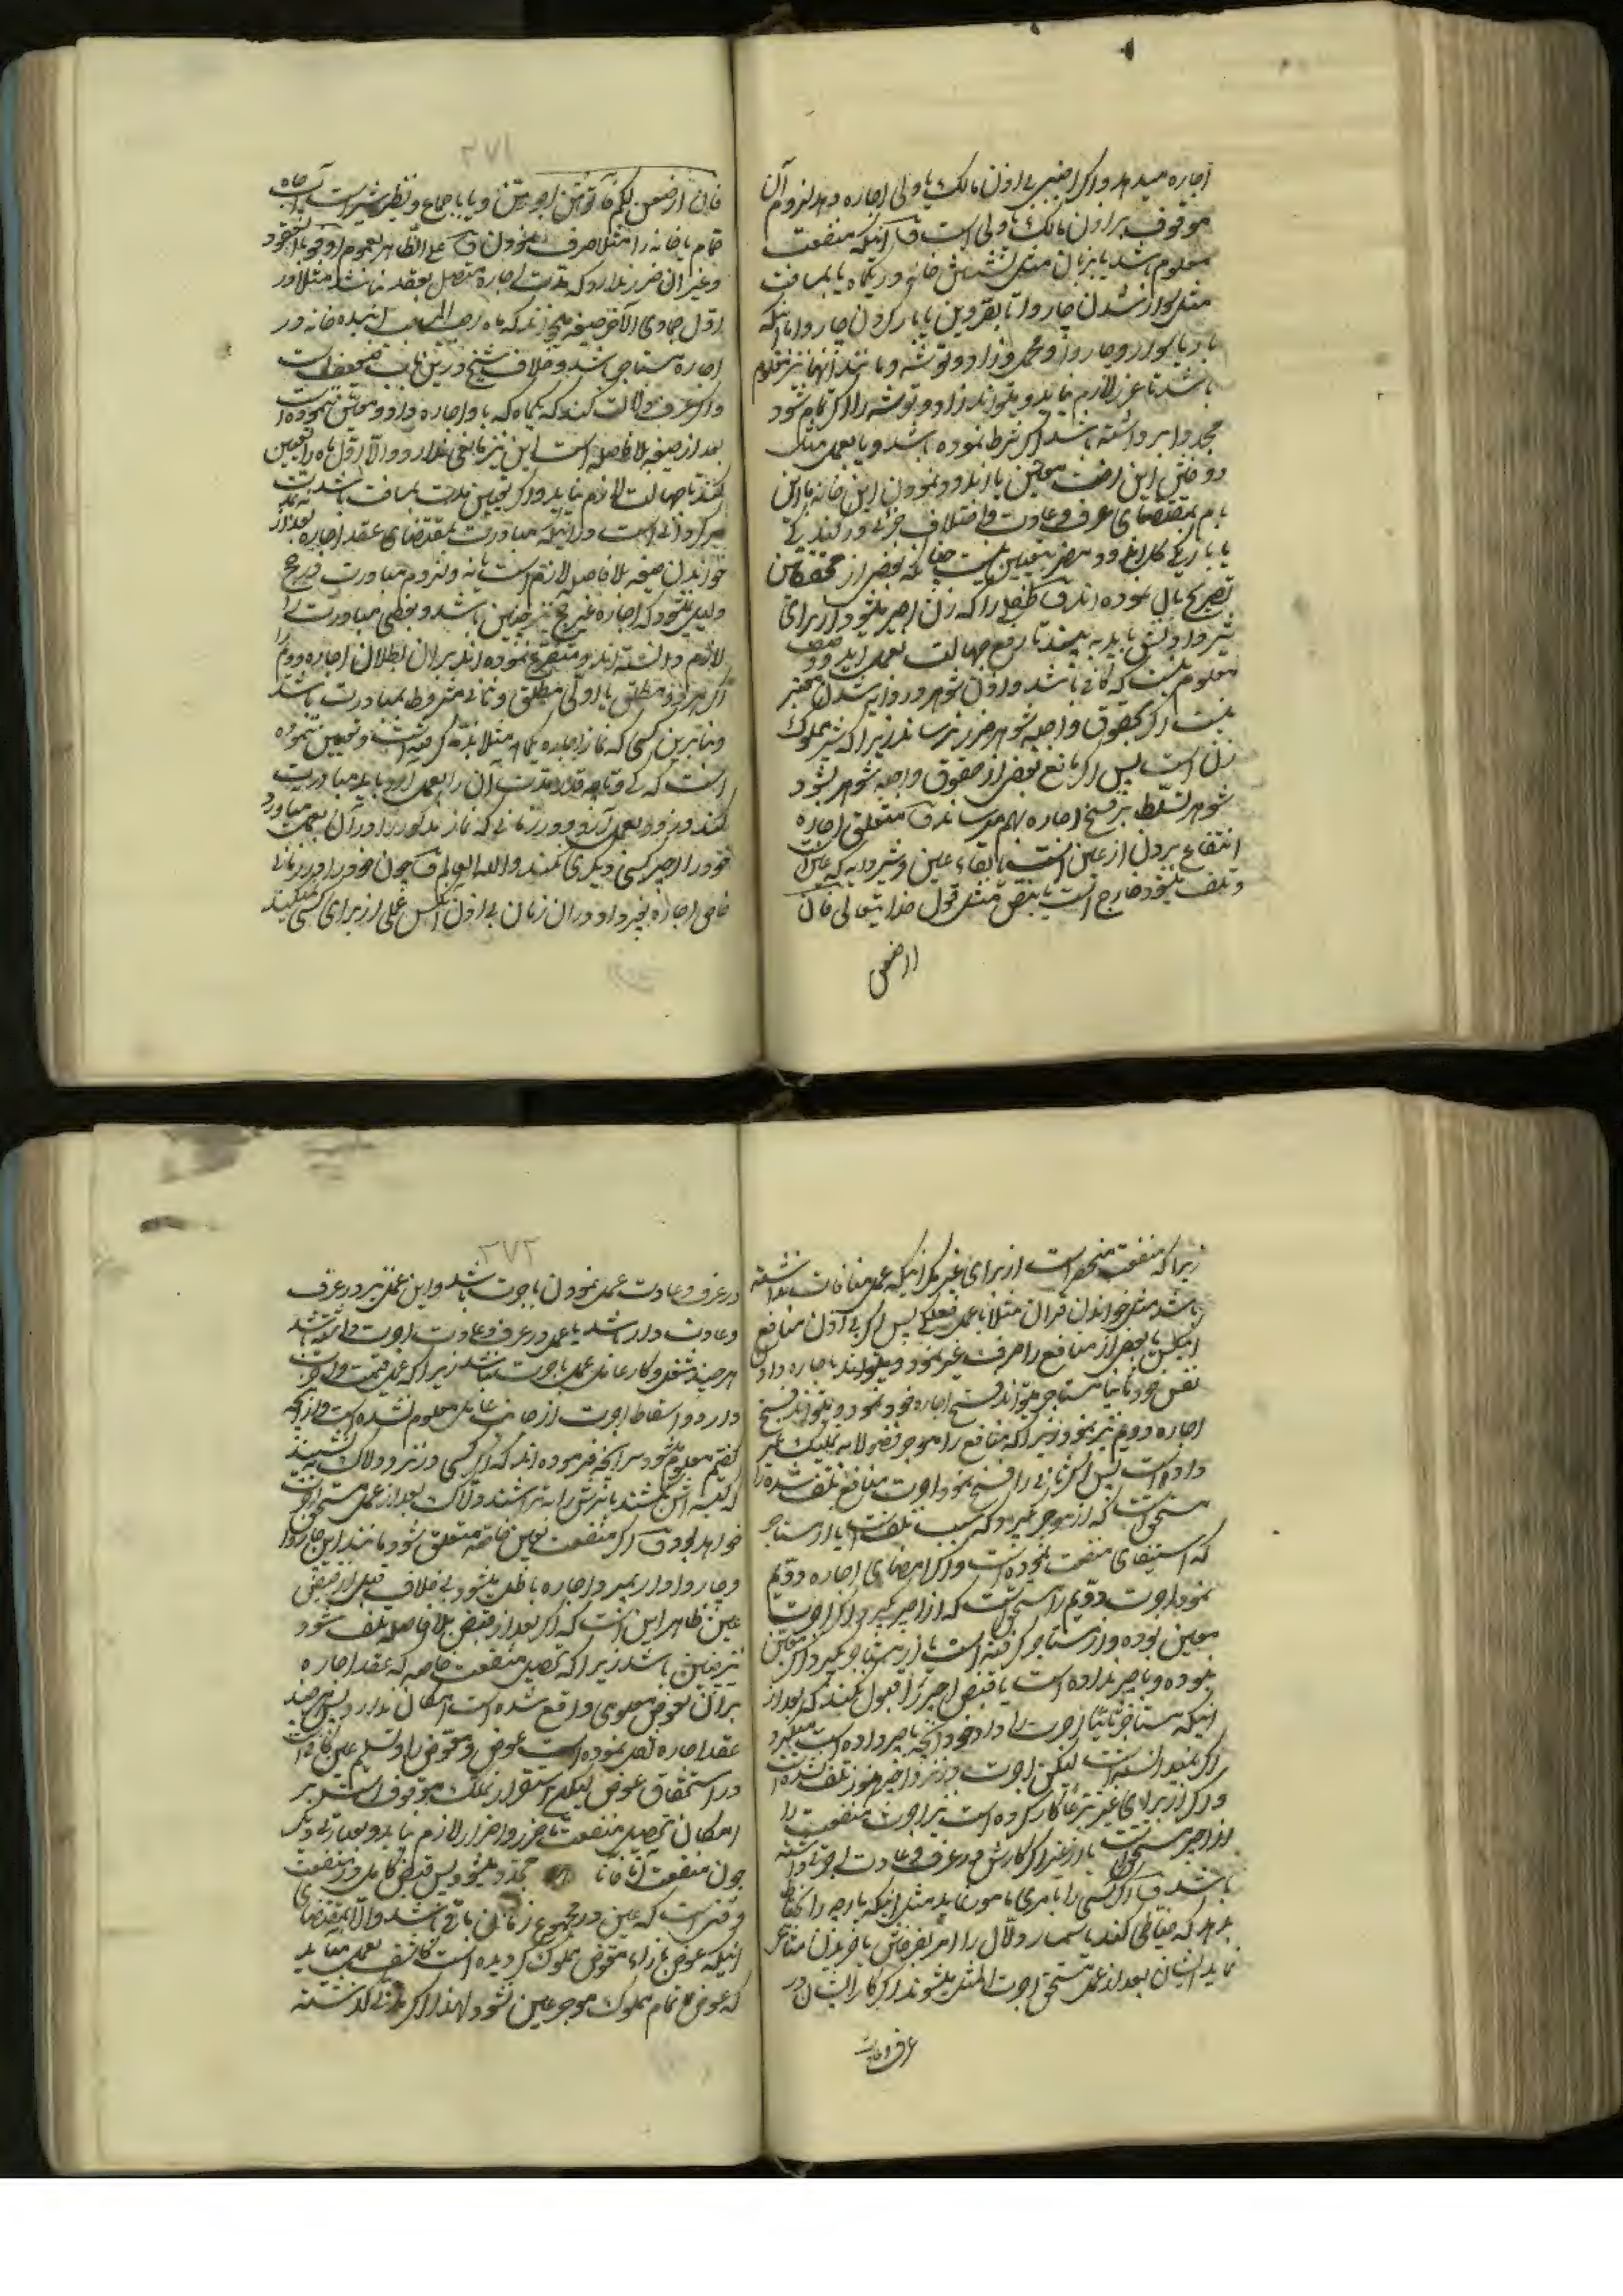 اجاره میدهد و اگر اجنبی بی اذن مالک یا ولی اجاره دهد لزوم آن
موقوف بر اذن مالک یا ولی است ف آنکه منفعت
معلوم باشد یا بزمان مثل نشستن خانه در یکماه یا بمسافت
مثل سوار شدن چاروا تا بقزوین یا بار کردن چاروا با آنکه
بار یا سوار و چاروا و محمل و زاد و توشه و مانند آنها نیز معلوم
باشد تا غرر لازم نیاید و میتواند زاد و توشه را اگر تمام شود
مجددا برداشته باشد اگر شرط نموده باشد و یا بعمل مثل
دوختن این رخت معین یا اندود نمودن این خانه با این
بام بمقتضای عرف و عادت و اختلاف جزئی در کندگی
یا باریکی کل اندود مضر بتعیین نیست چنانکه بعضی از محققین
تصریح بآن نموده اند ف طفلی را که زن اجیر میشود از برای
شیر دادنش باید به بیند تا رفع جهالت بعمل آید و وصف
معلوم نیست که کافی باشد و اذن شوهر در دایه شدن معتبر
نیست اگر بحقوق واجبه شوهر ضرر نرساند زیرا که شیر مملوک
زن است پس اگر مانع بعضی از حقوق واجبه شوهر بشود
شوهر تسلط بر فسخ اجاره بهم میرساند ف متعلق اجاره
انتفاع بردن از عین است با بقاء عین و شیر دایه که عین است
و تلف میشود خارج است یا بنص مثل قول خدا یتعالی فان
ارضعن
۲۷۱
فان ارضعن لکم فآتوهن اجورهن و یا باجماع و نظیر شیر است آب چاه
حمام یا خانه را مثلا صرف نمودن ف علی الظاهر لعموم اوفوا بالعقود
و غیر آن ضرر ندارد که مدت اجاره متصل بعقد نباشد مثلا در
اول جمادی الآخر صیغه میخواند که ماه رجب آینده خانه در
اجاره مستاجر باشد و خلاف شیخ درین باب ضعیف است
و اگر عرف دلالت کند که یکماه که باو اجاره داد و معین ننموده است
بعد از صیغه بلا فاصله است این نیز مانعی ندارد و الا اول ماه را تعیین
بکند تا جهالت لازم نیاید و اگر تعیین مدت بمسافت باشد
در آنکه مبادرت بمقتضای عقد اجاره بعد از
خواندن صیغه بلا فاصله لازم است یا نه و لزوم مبادرت در حج
دلیل نمیشود که اجاره غیر حج نیز چنین باشد و بعضی مبادرت را
لازم دانسته اند و متفرع نموده اند بر آن بطلان اجاره دوم را
اگر هر دو مطلق یا اولی مطلق و ثانی مشروط بمبادرت باشد
و بنابرین کسی که نماز اجاره یکماه مثلا بذمه گرفته است و تعیین ننموده
است که کی و تا چه قدر مدت آن را بعمل آورد باید مبادرت
بکند و بزودی بعمل آرد و در زمانی که نماز مذکور را در آن بعمل میآورد
خود را اجیر کسی دیگری نکند و الله العالم ف چون خود را در زمانی
خاص اجاره بغیر داد در آن زمان بی اذن آنکس عملی از برای کسی نمیکند
زیرا که منفعت منحصر است از برای غیر مگر آنکه عمل منافات نداشته
باشد مثل خواندن قرآن مثلا با عمل فعلی پس اگر بی اذن منافع
آنکس یا بعض از منافع را صرف غیر نمود و میتواند باجاره دادن
نفس خود ثانیا مستاجر میتواند فسخ اجاره خود نمود و میتواند فسخ
اجاره دویم نیز نمود زیرا که منافع را موجر فضولا به تملیک غیر
داده است پس اگر ثانی را فسخ نمود اجرت منافع تلف شده را
مستحق است که از موجر بگیرد که سبب تلف است یا از مستاجر
که استیفای منفعت نموده است و اگر امضای اجاره دویم
نمود اجرت دویم را مستحق است که از اجیر بگیرد اگر اجرت
معین بوده و از مستاجر گرفته است یا از مستاجر بگیرد اگر معین
نبوده و باجیر نداده است یا قبض اجیر را قبول نکند که بعد از
آنکه مستاجر ثانیا اجرت را داد خود آنچه باجیر داده است میگیرد
اگر نمیدانسته است لیکن اجرت در نزد اجیر هنوز تلف نشده است
و اگر از برای غیر تبرعا کار کرده است نیز اجرت منفعت را
از اجیر مستحق است یا از غیر اگر کارش در عرف و عادت اجرتی داشته
باشد ف اگر کسی را بامری مامور نماید مثل اینکه پارچه را بخیاط
بدهد که خیاطی کند یا سمسار و دلال را امر بفروختن یا خریدن متاعی
نماید ایشان بعد از عمل مستحق اجرت المثل میشوند اگر کار ایشان در
عرف و عادت
۲۷۲
در عرف و عادت عمل نمودن باجرت باشد و این عمل نیز در عرف
و عادت دارا باشد یا عمل در عرف و عادت اجرت داشته باشد
هر چند شغل و کار عامل عمل باجرت نباشد زیرا که عمل قیمت و اجرت
دارد و اسقاط اجرت از جانب عامل معلوم نشده است و از آنچه
گفتم معلوم میشود سر آنچه فرموده اند که اگر کسی در نزد دلاک بنشیند
که کیسه اش بکشد یا سرش را به تراشد دلاک بعد از عمل مستحق اجرت
خواهد بود ف اگر منفعت بعین خاصه متعلق شود مانند این چاروا
و چاروادار بمیرد اجاره باطل میشود بی خلاف قبل از قبض
عین ظاهر این است که اگر بعد از قبض بلا فاصله تلف شود
نیز چنین باشد زیرا که تحصیل منفعت خاصه که عقد اجاره
بر آن بعوض معلومی واقع شده است امکان ندارد پس هر چند
عقد اجاره نقل نموده است عوض و معوض را و تسلیم عین کافی است
در استحقاق عوض لیکن استقرار تملک موقوف است بر
امکان تحصیل منفعت تا ضرر و اضرار لازم نیاید و بعبارتی دیگر
چون منفعت آنا فآنا مجدد میشود پس قبض کامل در منفعت
وقتی است که عین در مجموع زمانی باقی باشد و الا بمقتضای
آنکه عوض بازاء معوض مملوک گردیده است کاشف بعمل میآید
که عوض تمام مملوک موجر عین نشود لهذا اگر زمانی گذشته